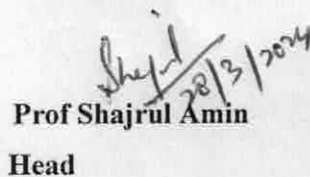 Shajrul
28/3/2024
Prof Shajrul Amin
Head